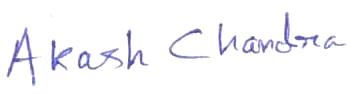 Akash Chandra